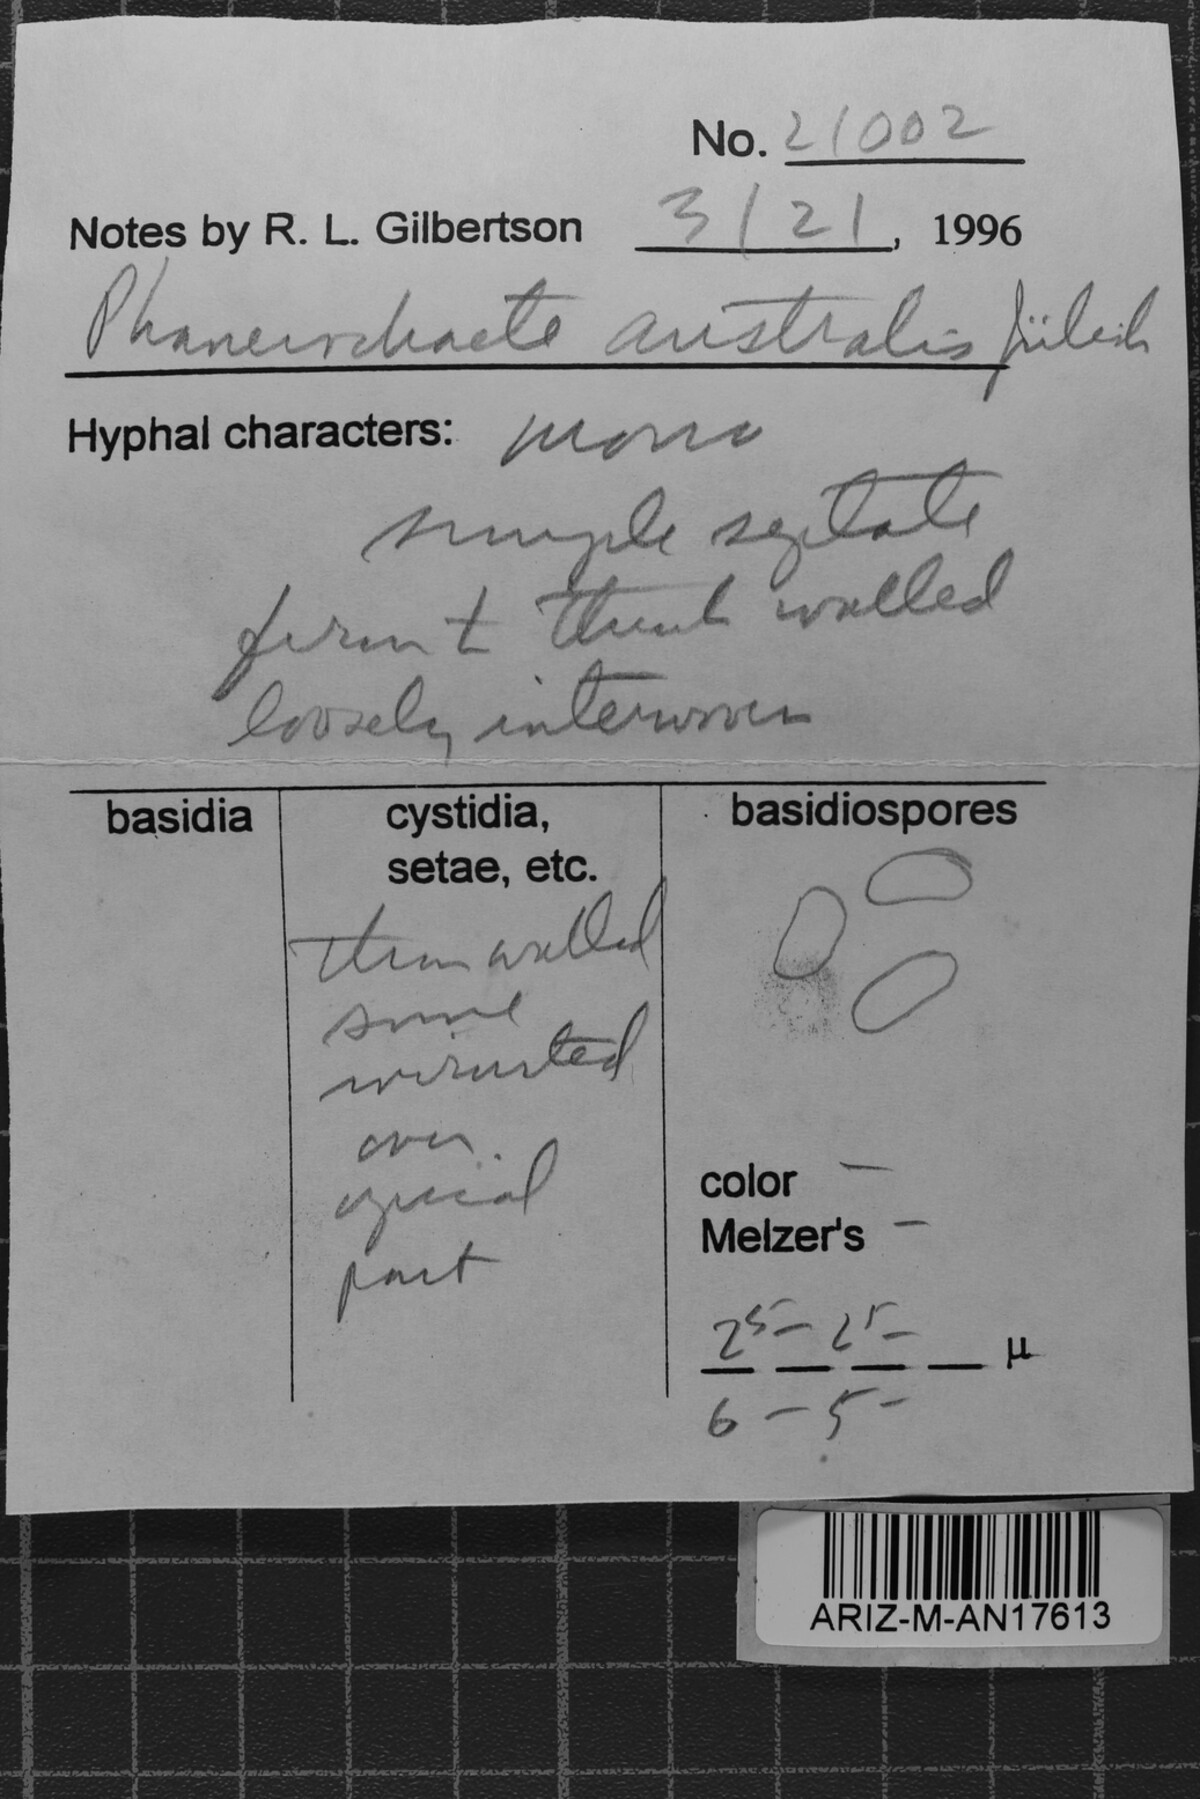 No. 21002
Notes by R. L. Gilbertson 3/21, 1996
Phanerochaete australis Jülich
Hyphal characters: mono
simple septate
firm walled
loosely interwoven
basidia
cystidia, setae, etc.
thin walled
some
incrusted
over
apical
part
basidiospores
color –
Melzer's –
25– 25– µ
6 – 5 –
ARIZ-M-AN17613